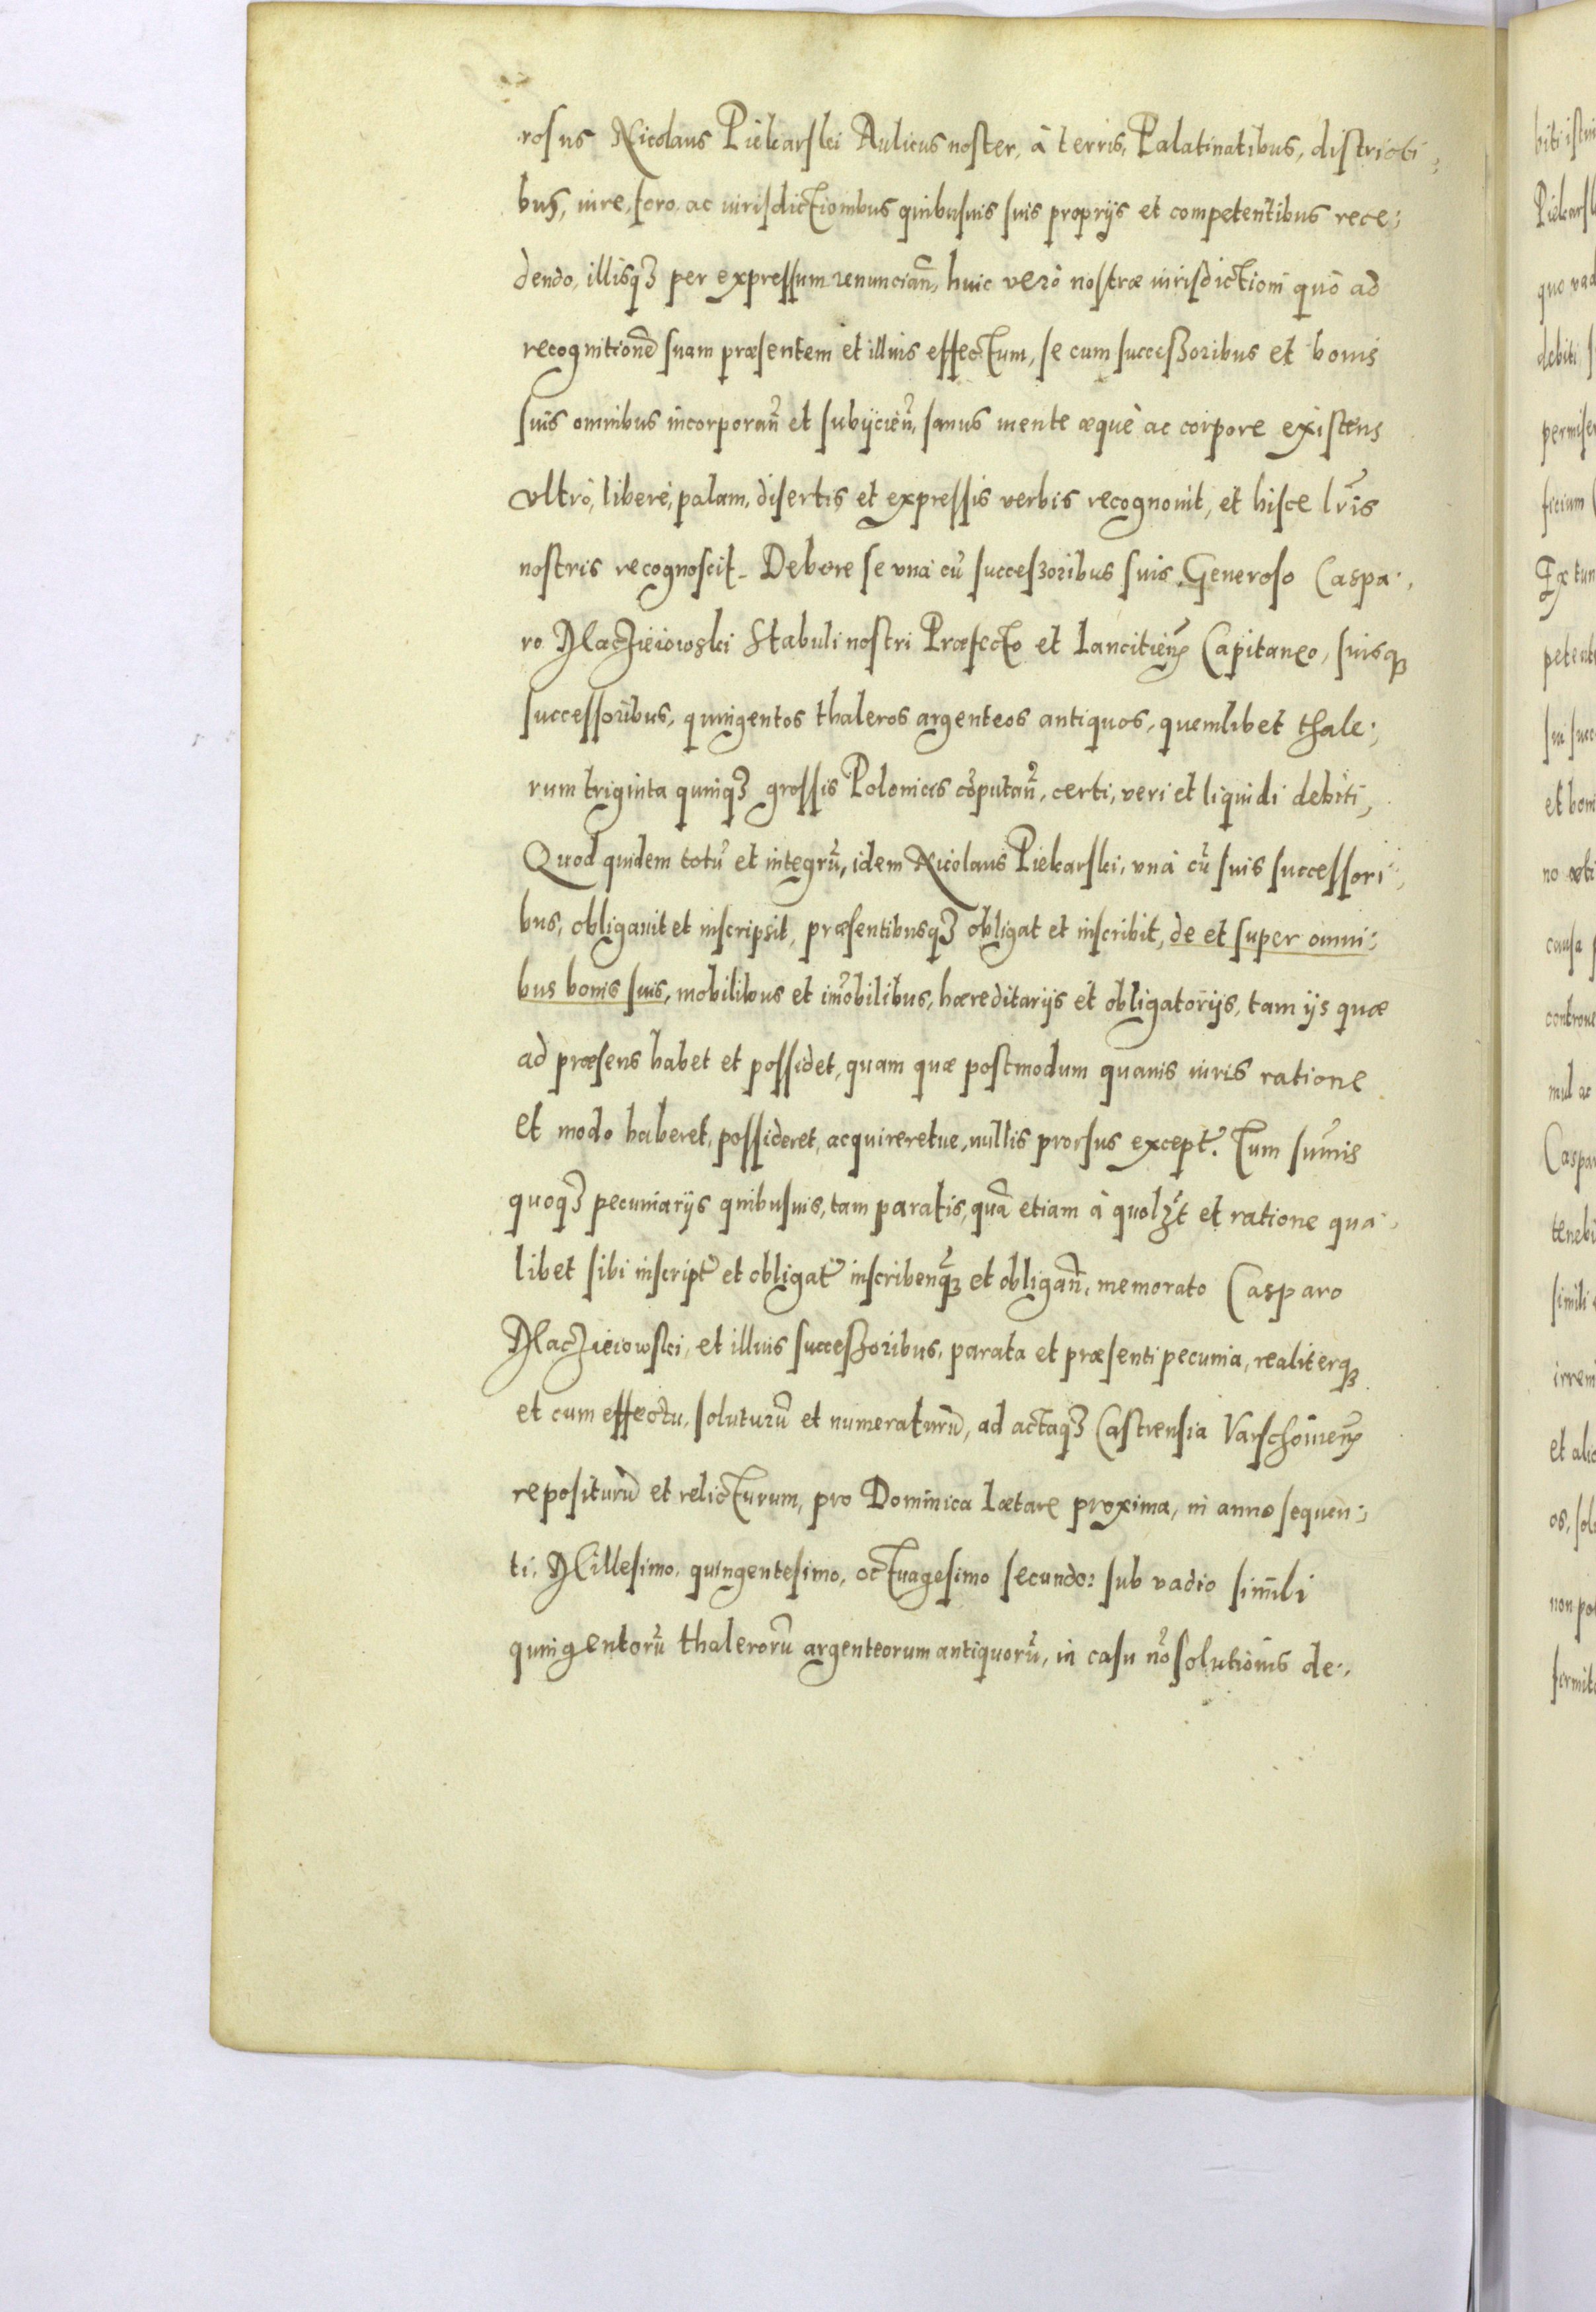 rosus Nicolaus Piekarski Aulicus noster, à terris, Palatinatibus, districti:
bus, iure, foro, ac iurisdictionibus quibusuis suis proprijs et competentibus rece:
dendo, illisqȝ per expressum renuncian̄, huic verò nostræ iurisdictioni quò ad
recognitionē suam præsentem et illius effectum, se cum successoribus et bonis
suis omnibus incorporan̄ et subijcien̄, sanus mente æquè ac corpore existens
vltrò, liberè, palam, disertis et expressis verbis recognouit, et hisce lr̄is
nostris recognoscit. Debere se vnà cū successoribus suis Generoso Caspa:
ro Maczieiowski Stabuli nostri Præfecto et Lancitien̄ Capitaneo, suisqȝ
successoribus, quingentos thaleros argenteos antiquos, quemlibet thale:
rum triginta quinqȝ grossis Polonicis cōputan̄, certi, veri et liquidi debiti,
Quod quidem totū et integrū, idem Nicolaus Piekarski, vnà cū suis successori:
bus, obligauit et inscripsit, præsentibusqȝ obligat et inscribit, de et super omni:
bus bonis suis, mobilibus et im̄obilibus, hæreditarijs et obligatorijs, tam ijs quæ
ad præsens habet et possidet, quam quæ postmodum quauis iuris ratione
et modo haberet, possideret, acquireretue, nullis prorsus except̄. Tum sum̄is
quoqȝ pecuniarijs quibusuis, tam paratis, quā etiam à quolȝt et ratione qua:
libet sibi inscript̄ et obligat̄ inscriben̄qȝ et obligan̄, memorato Casparo
Maczieiowski, et illius successoribus, parata et præsenti pecunia, realiterqȝ
et cum effectu, soluturū et numeraturū, ad actaqȝ Castrensia Varschouien̄
repositurū et relicturum, pro Dominica Lætare proxima, in anno sequen:
ti, Millesimo, quingentesimo, octuagesimo secundo: sub vadio simili
quingentorū thalerorū argenteorum antiquorū, in casu nō solutionis de: